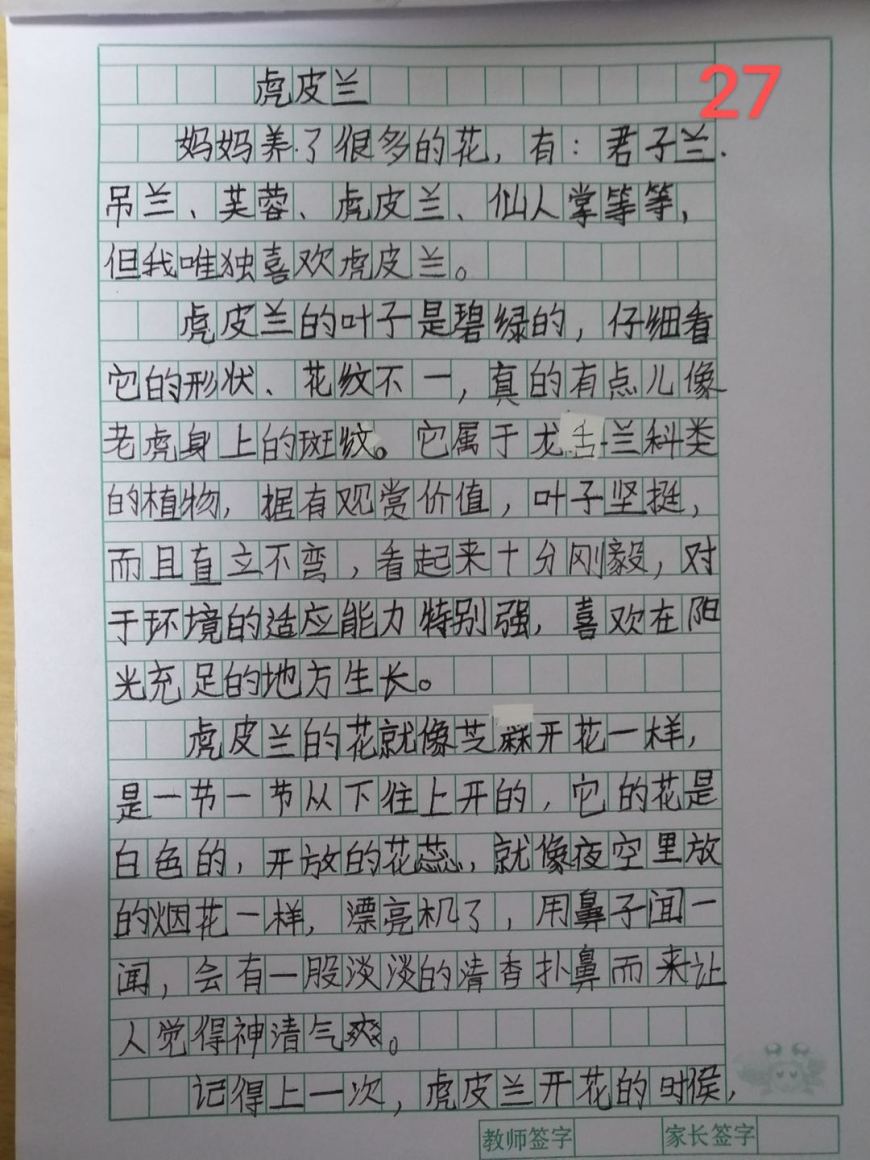 虎皮兰
27
妈妈养了很多的花，有：君子兰.
吊兰、芙蓉、虎皮兰、仙人掌等等，
但我唯独喜欢虎皮兰。
虎皮兰的叶子是碧绿的，仔细看
它的形状、花纹不一，真的有点儿像
老虎身上的斑纹。它属于龙舌兰科类
的植物，据有观赏价值，叶子坚挺，
而且直立不弯，看起来十分刚毅，对
于环境的适应能力特别强，喜欢在阳
光充足的地方生长。
虎皮兰的花就像芝麻开花一样，
是一节一节从下往上开的，它的花是
白色的，开放的花蕊，就像夜空里放
的烟花一样，漂亮机了，用鼻子闻一
闻，会有一股淡淡的清香扑鼻而来让
人觉得神清气爽。
记得上一次，虎皮兰开花的时侯，
教师签字
家长签字